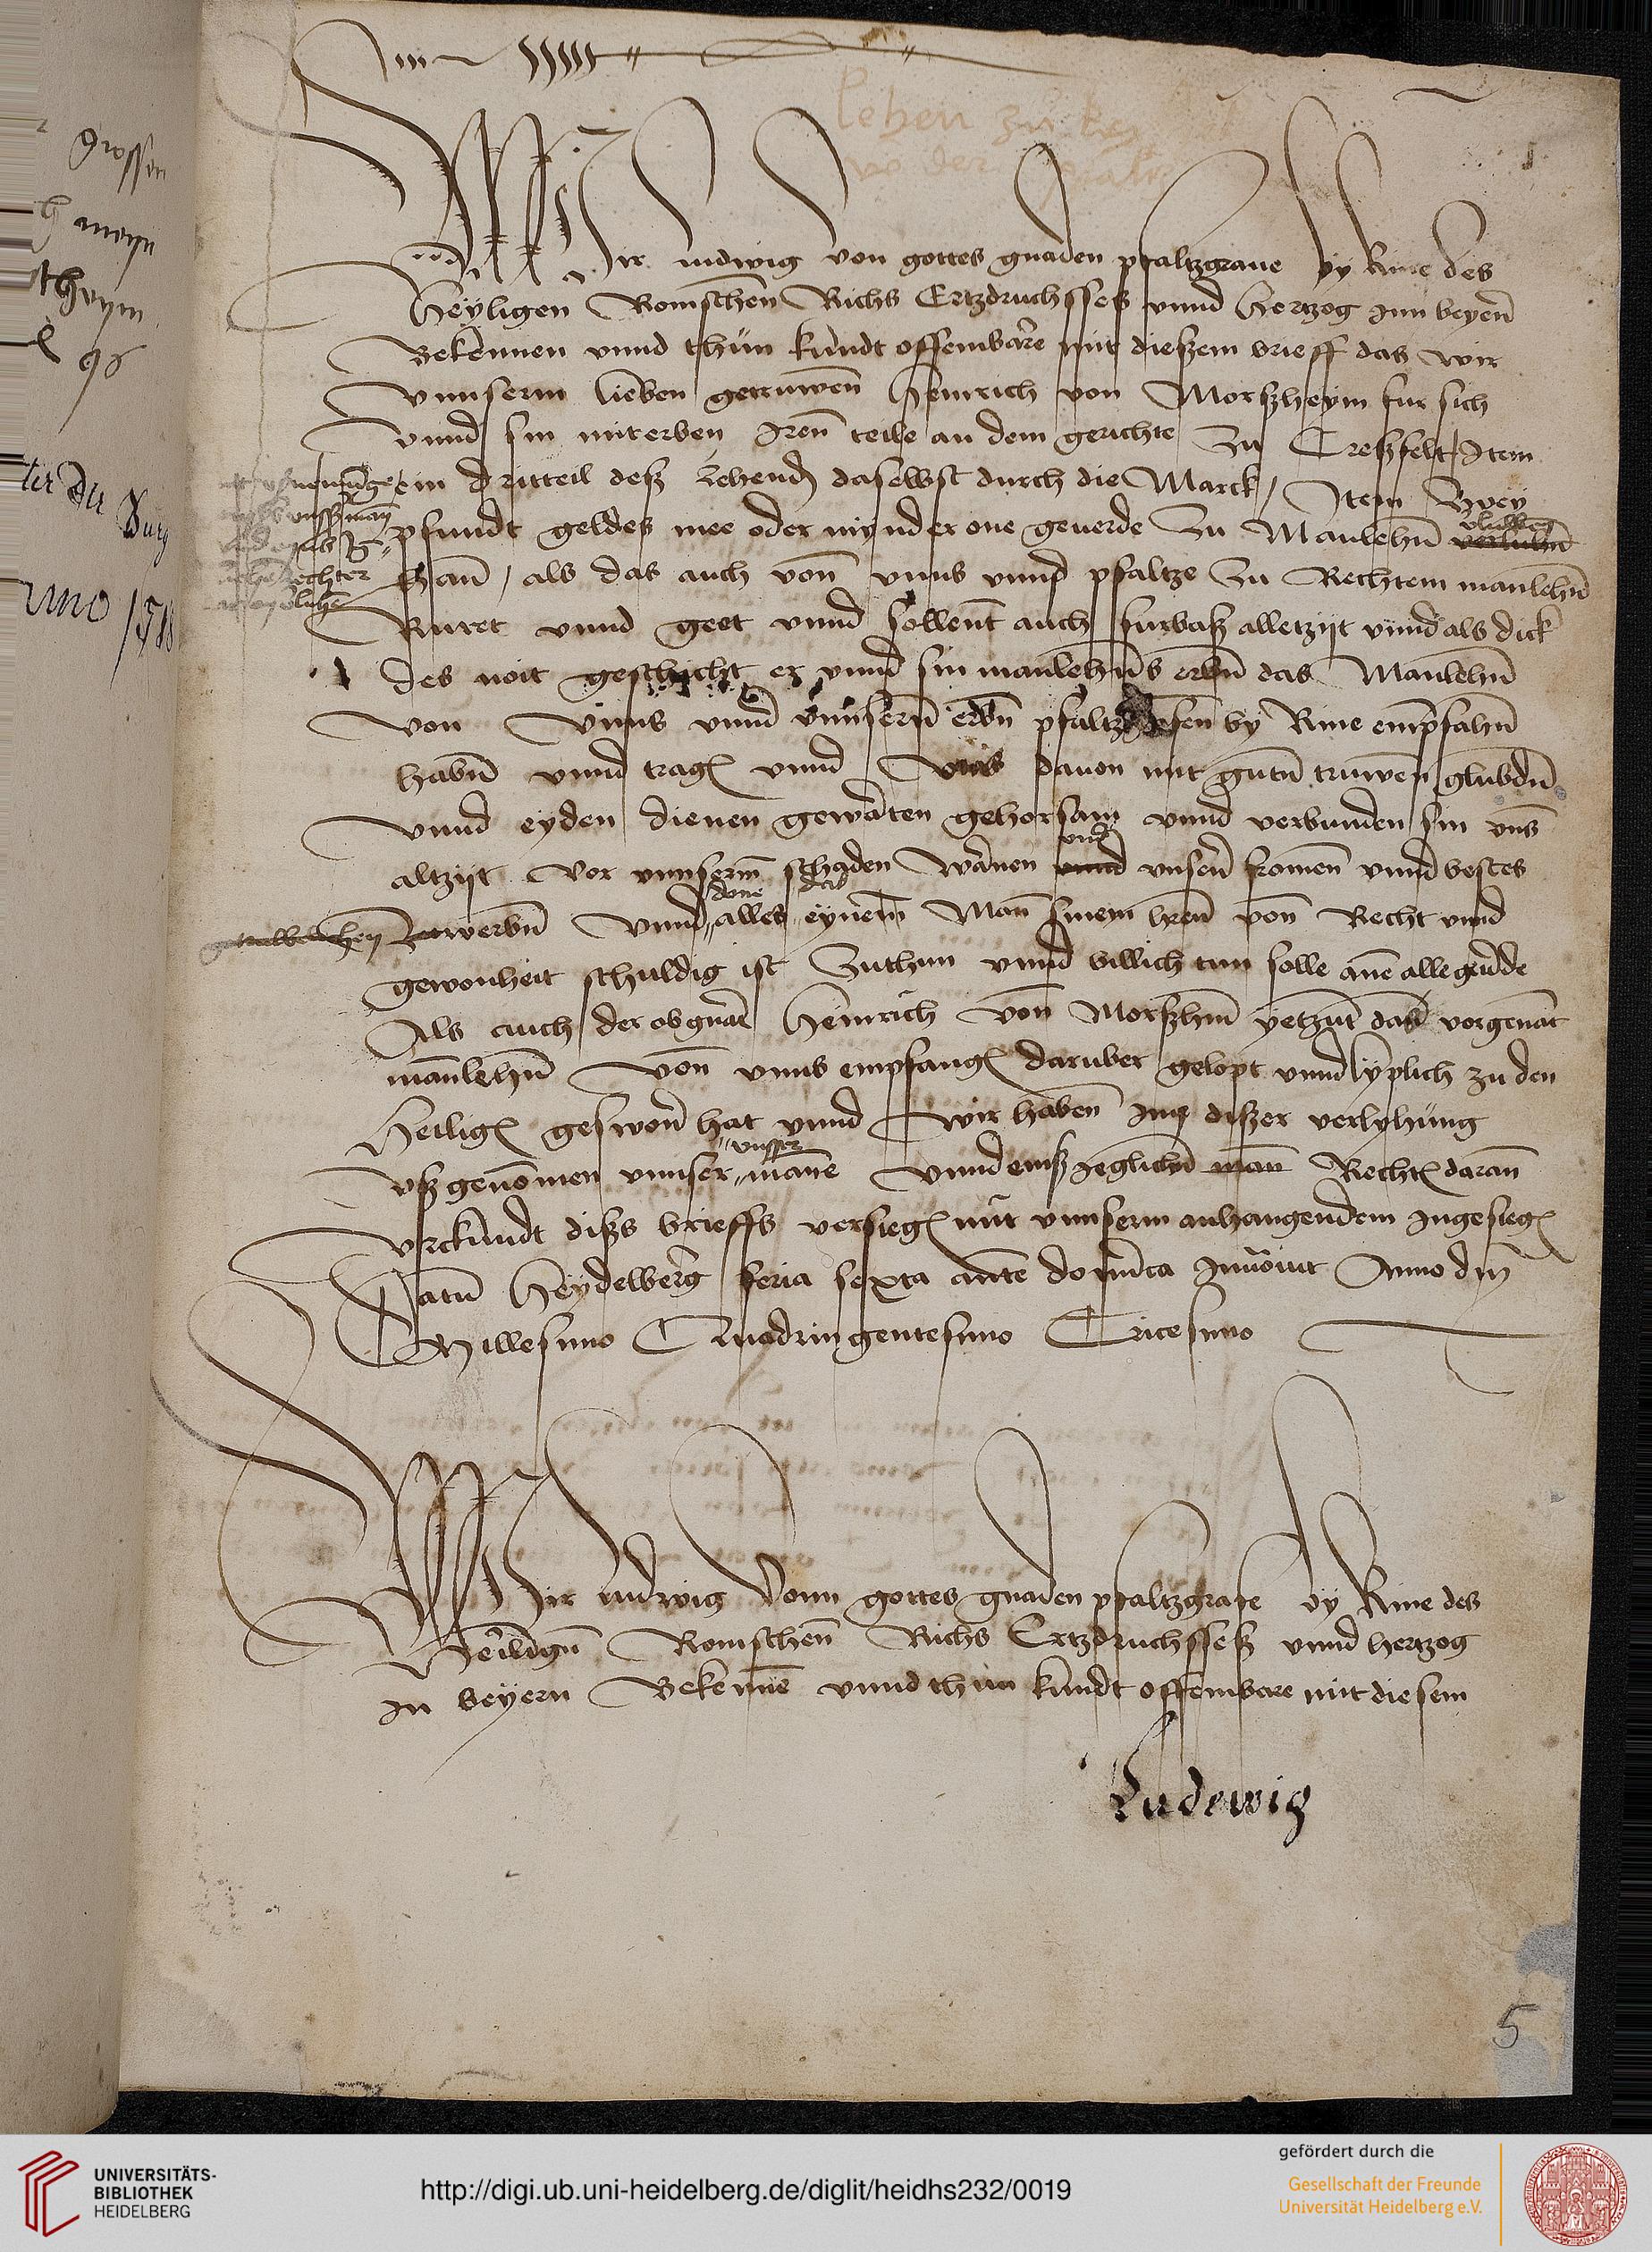 Wir ludwig von gottes gnaden pfaltzgraue by Rine des
heyligen Romschen Richs Ertzdruchssess vnnd hertzog Inn beyern
Bekennen vnnd thun kundt offenbare mit dießem brieff das wir
vnnserm lieben getruwen heinrich von Morßheym fur sich
vnnd sin miterben Iren teile an dem gerichte zu Creßfelt / Item
ein dritteil deß zehends daselbst durch die Marck / Item Zwey
pfundt geldes mee oder mynder one geuerde zu Manlehn verluhn
han / als das auch von vnns vnnd pfaltze zu Rechtem manlehn
Ruret vnnd geet vnnd sollent auch furbaß alletzijt vnnd als dick
des noit geschicht er vnnd sin manlehens erbn das Manlehn
von vnns vnnd vnnsern erbn pfaltzgrafen by Rine empfahn
habn vnnd tragen vnnd vns dauon mit guten truwen glubdn
vnnd eyden dienen gewarten gehorsam vnnd verbunden sin vns
altzijt vor vnnserm schaden warnen vnd vnsern fromen vnnd bestes
werbn vnnd alles eynem Man sinem hern von Recht vnnd
gewonheit schuldig ist zuthun vnnd billich tun solle ane alle geuerde
Als auch der obgnant heinrich von Morßhm yetzunt das vorgenant
manlehn von vnns empfangen daruber gelopt vnnd lyplich zu den
heiligen gesworn hat vnnd wir haben Inn dißer verlyhung
vßgenomen vnnser manne vnnd eins Iglichen man Rechten daran
vrckundt dißs brieffs versiegelt mit vnnserm anhangendem Ingesiegel
Datum heydelberg feria sexta ante dominica Inuocauit Anno domini
Millesimo Quadringentesimo Tricesimo
Wir ludwig Vonn gottes gnaden pfaltzgrafe by Rine des
Heiligen Romschen Richs Ertzdruchsseß vnnd hertzog
In beyern Bekenne vnnd thun kundt offenbare mit diesem
Ludewig
5
UNIVERSITÄTS-
BIBLIOTHEK
HEIDELBERG
http://digi.ub.uni-heidelberg.de/diglit/heidhs232/0019
gefördert durch die
Gesellschaft der Freunde
Universität Heidelberg e.V.